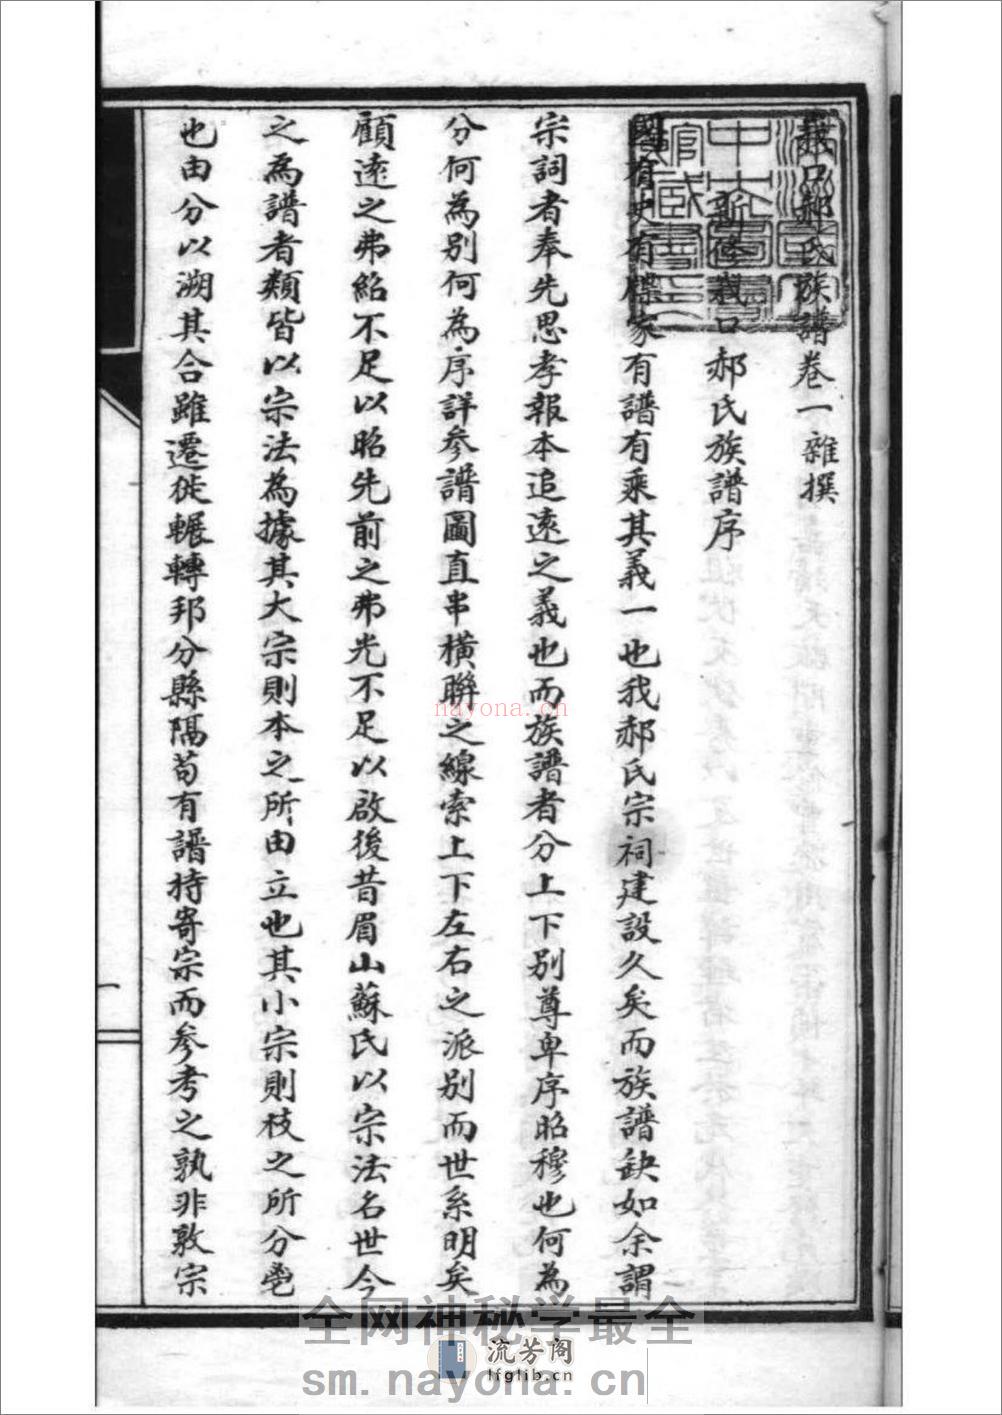 峩口郝氏族譜卷一 雜撰
新修峩口郝氏族譜序
國有史有牒家有譜有乘其義一也我郝氏宗祠建設久矣而族譜缺如余謂
宗祠者奉先思孝報本追遠之義也而族譜者分上下別尊卑序昭穆也何為
分何為別何為序詳參譜圖直串橫聯之線索上下左右之派別而世系明矣
顧遠之弗紹不足以昭先前之弗光不足以啟後昔眉山蘇氏以宗法名世今
之為譜者類皆以宗法為據其大宗則本之所由立也其小宗則枝之所分
也由分以溯其合雖遷徙輾轉邦分縣隔苟有譜持寄宗而參考之孰非敦宗
一
nayona.cn
全网神秘学最全
流芳阁
lfglib.cn
sm.nayona.cn